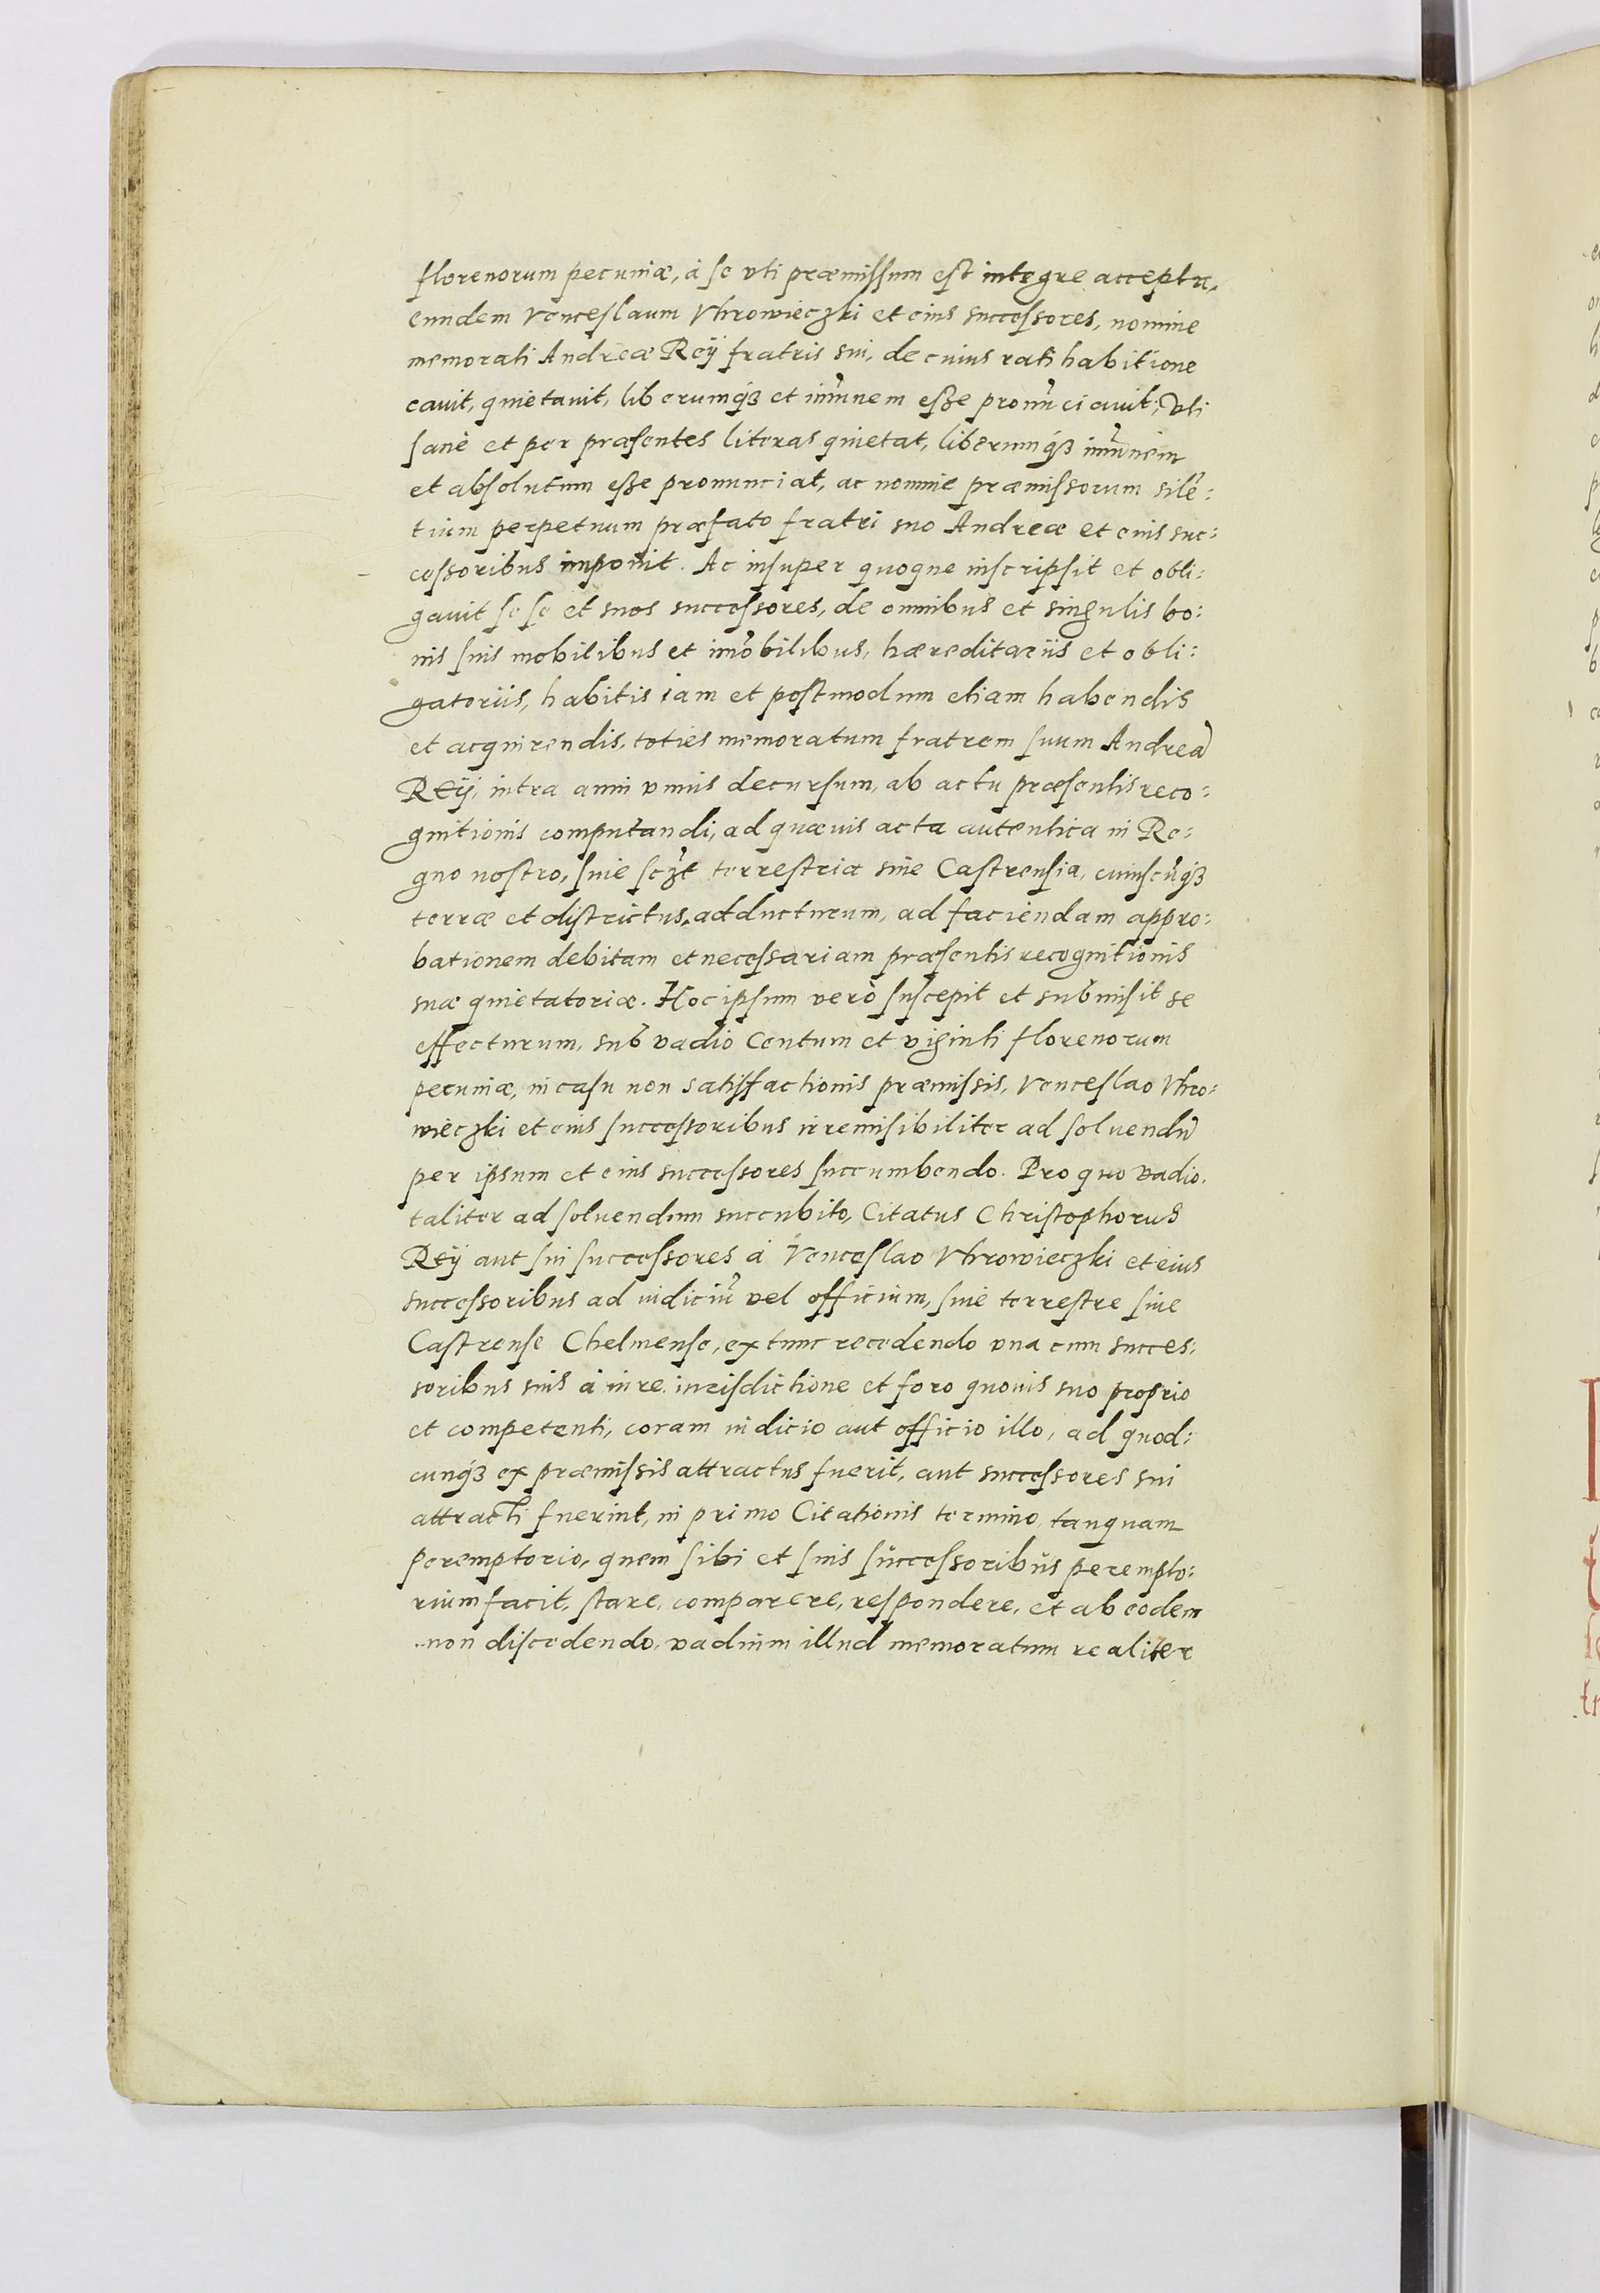 florenorum pecuniæ, à se vti præmissum est integre acceptu,
eundem Venceslaum Vhrowieczki et eius successores, nomine
memorati Andreæ Reÿ fratris sui, de cuius rati habitione
cauit, quietauit, liberumqꝫ et im̃unem esse pronũciauit, Vti
sanè et per præsentes literas quietat, liberumqꝫ im̃unem
et absolutum esse pronunciat, ac nomine præmissorum silẽ:
tium perpetuum præfato fratri suo Andreæ et eius suc:
cessoribus imponit. Ac insuper quoque inscripsit et obli:
gauit se se et suos successores, de omnibus et singulis bo:
nis suis mobilibus et im̃obilibus, hæreditariis et obli:
gatoriis, habitis iam et postmodum etiam habendis
et acquirendis, toties memoratum fratrem suum Andreã
Reÿ, intra anni vnius decursum, ab actu præsentis reco:
gnitionis computandi, ad quæuis acta autentica in Re:
gno nostro, siue scꝫt terrestria siue Castrensia, cuiuscũqꝫ
terræ et districtus, adducturum, ad faciendam appro:
bationem debitam et necessariam præsentis recognitionis
suæ quietatoriæ. Hoc ipsum verò suscepit et submisit se
effecturum, sub vadio Centum et viginti florenorum
pecuniæ, in casu non satisfactionis præmissis, Venceslao Vhro:
wieczki et eius successoribus irremisibiliter ad soluendũ
per ipsum et eius successores succumbendo. Pro quo vadio,
taliter ad soluendum succubito, Citatus Christophorus
Reÿ aut sui successores à Venceslao Vhrowieczki et eius
successoribus ad iudiciũ vel officium, siue terrestre siue
Castrense Chelmense, ex tunc recedendo vna cum succes:
soribus suis à iure iurisdictione et foro quouis suo proprio
et competenti, coram iudicio aut officio illo, ad quod:
cunqꝫ ex præmissis attractus fuerit, aut successores sui
attracti fuerint, in primo Citationis termino, tanquam
peremptorio, quem sibi et suis successoribus perempto:
rium facit, stare, comparere, respondere, et ab eodem
non discedendo, vadium illud memoratum realiter